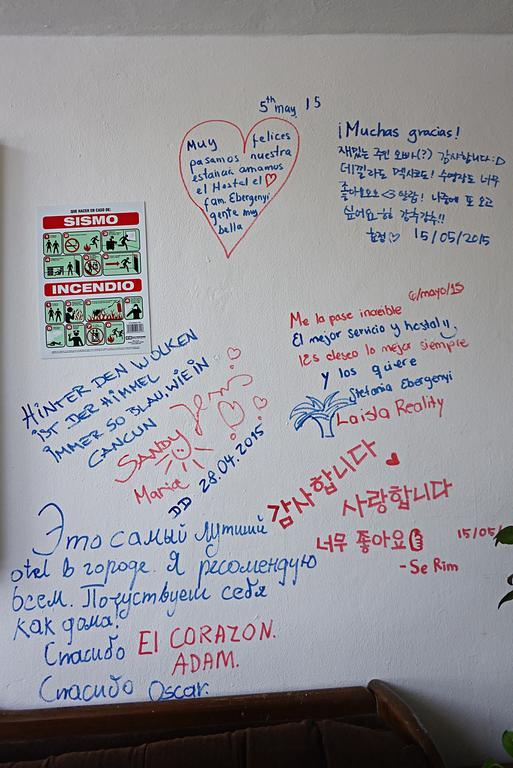 5th may, 15
Muy felices
pasamos nuestra
estancia, amamos
el Hostel el ♡
fam. Ebergenyi
gente muy
bella
¡Muchas gracias!
재밌는 주인 오빠(?) 감사합니다:D
데낄라도 멕시코도! 수영장도 너무
좋아요오오 <3 알람! 나중에 또 오고
싶어요 감사감사!!
효정♡ 15/05/2015
QUE HACER EN CASO DE:
SISMO
INCENDIO
6/mayo/15
Me la pase increible
El mejor servicio y hostal!!
les deseo lo mejor siempre
y los quiere
Stefania Ebergenyi
La isla Reality
HINTER DEN WOLKEN
IST DER HIMMEL
IMMER SO BLAU, WIE IN
CANCUN
SANDY Jens
Maria
DD 28.04.2015
감사합니다 ♥
사랑합니다
너무 좋아요
15/05/
-Se Rim
Это самый лутший
otel в городе. Я ресомендую
всем. Почуствуеш себя
как дома!
Спасибо El CORAZON.
ADAM.
Спасибо Oscar.